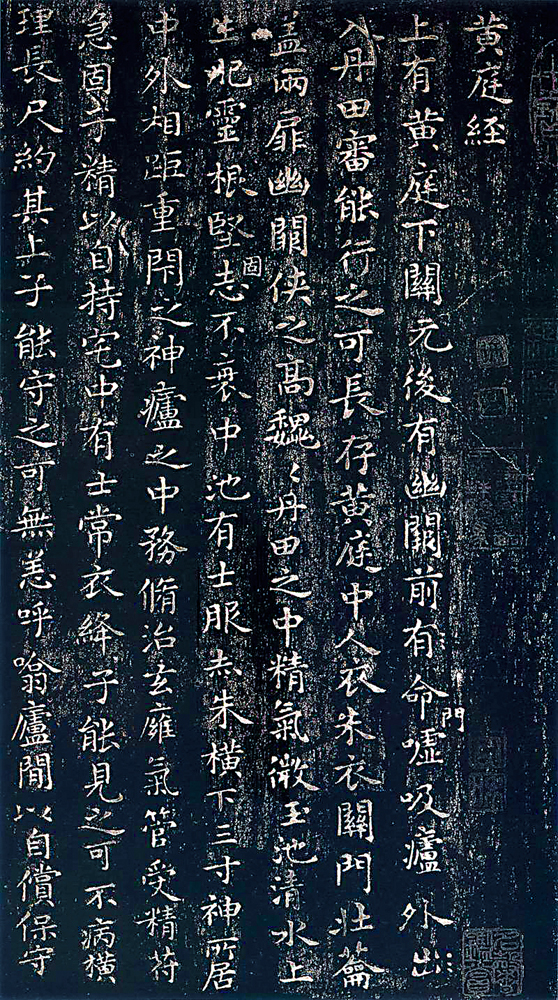 黄庭経
上有黄庭下關元後有幽闕前有命門噓吸廬外出
入丹田審能行之可長存黄庭中人衣朱衣關門壯蘥
盖兩扉幽闕俠之高魏〻丹田之中精氣微玉池清水上
生肥靈根堅固志不衰中池有士服赤朱横下三寸神所居
中外相距重閇之神廬之中務脩治玄廱氣管受精符
急固子精以自持宅中有士常衣絳子能見之可不病横
理長尺約其上子能守之可無恙呼噏廬間以自償保守